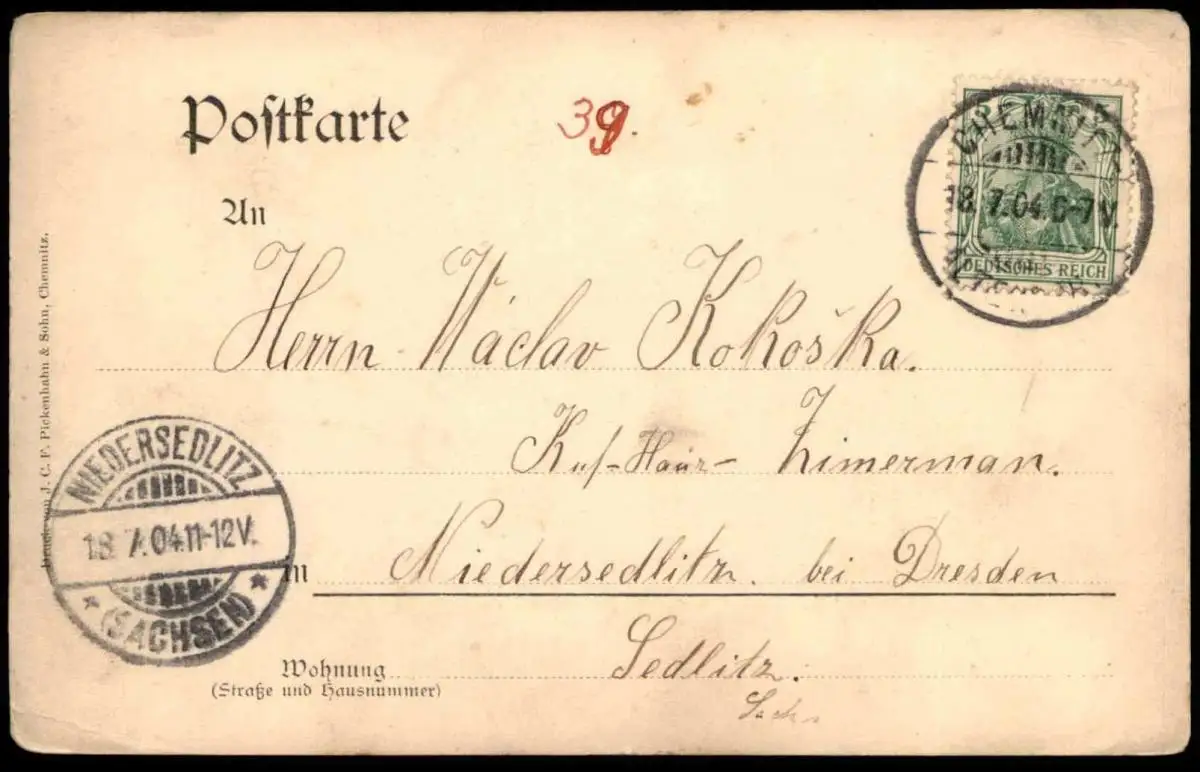 Postkarte
39.
CHEMNITZ
18. 7.04.6-7V.
DEUTSCHES REICH
An
Herrn Václav Kokoška.
Kuf-Haus- Zimerman.
in Niedersedlitz. bei Dresden
Sedlitz.
Wohnung
(Straße und Hausnummer)
NIEDERSEDLITZ
18. 7.04.11-12V.
* (SACHSEN) *
Druck von J. C. F. Pickenhahn & Sohn, Chemnitz.